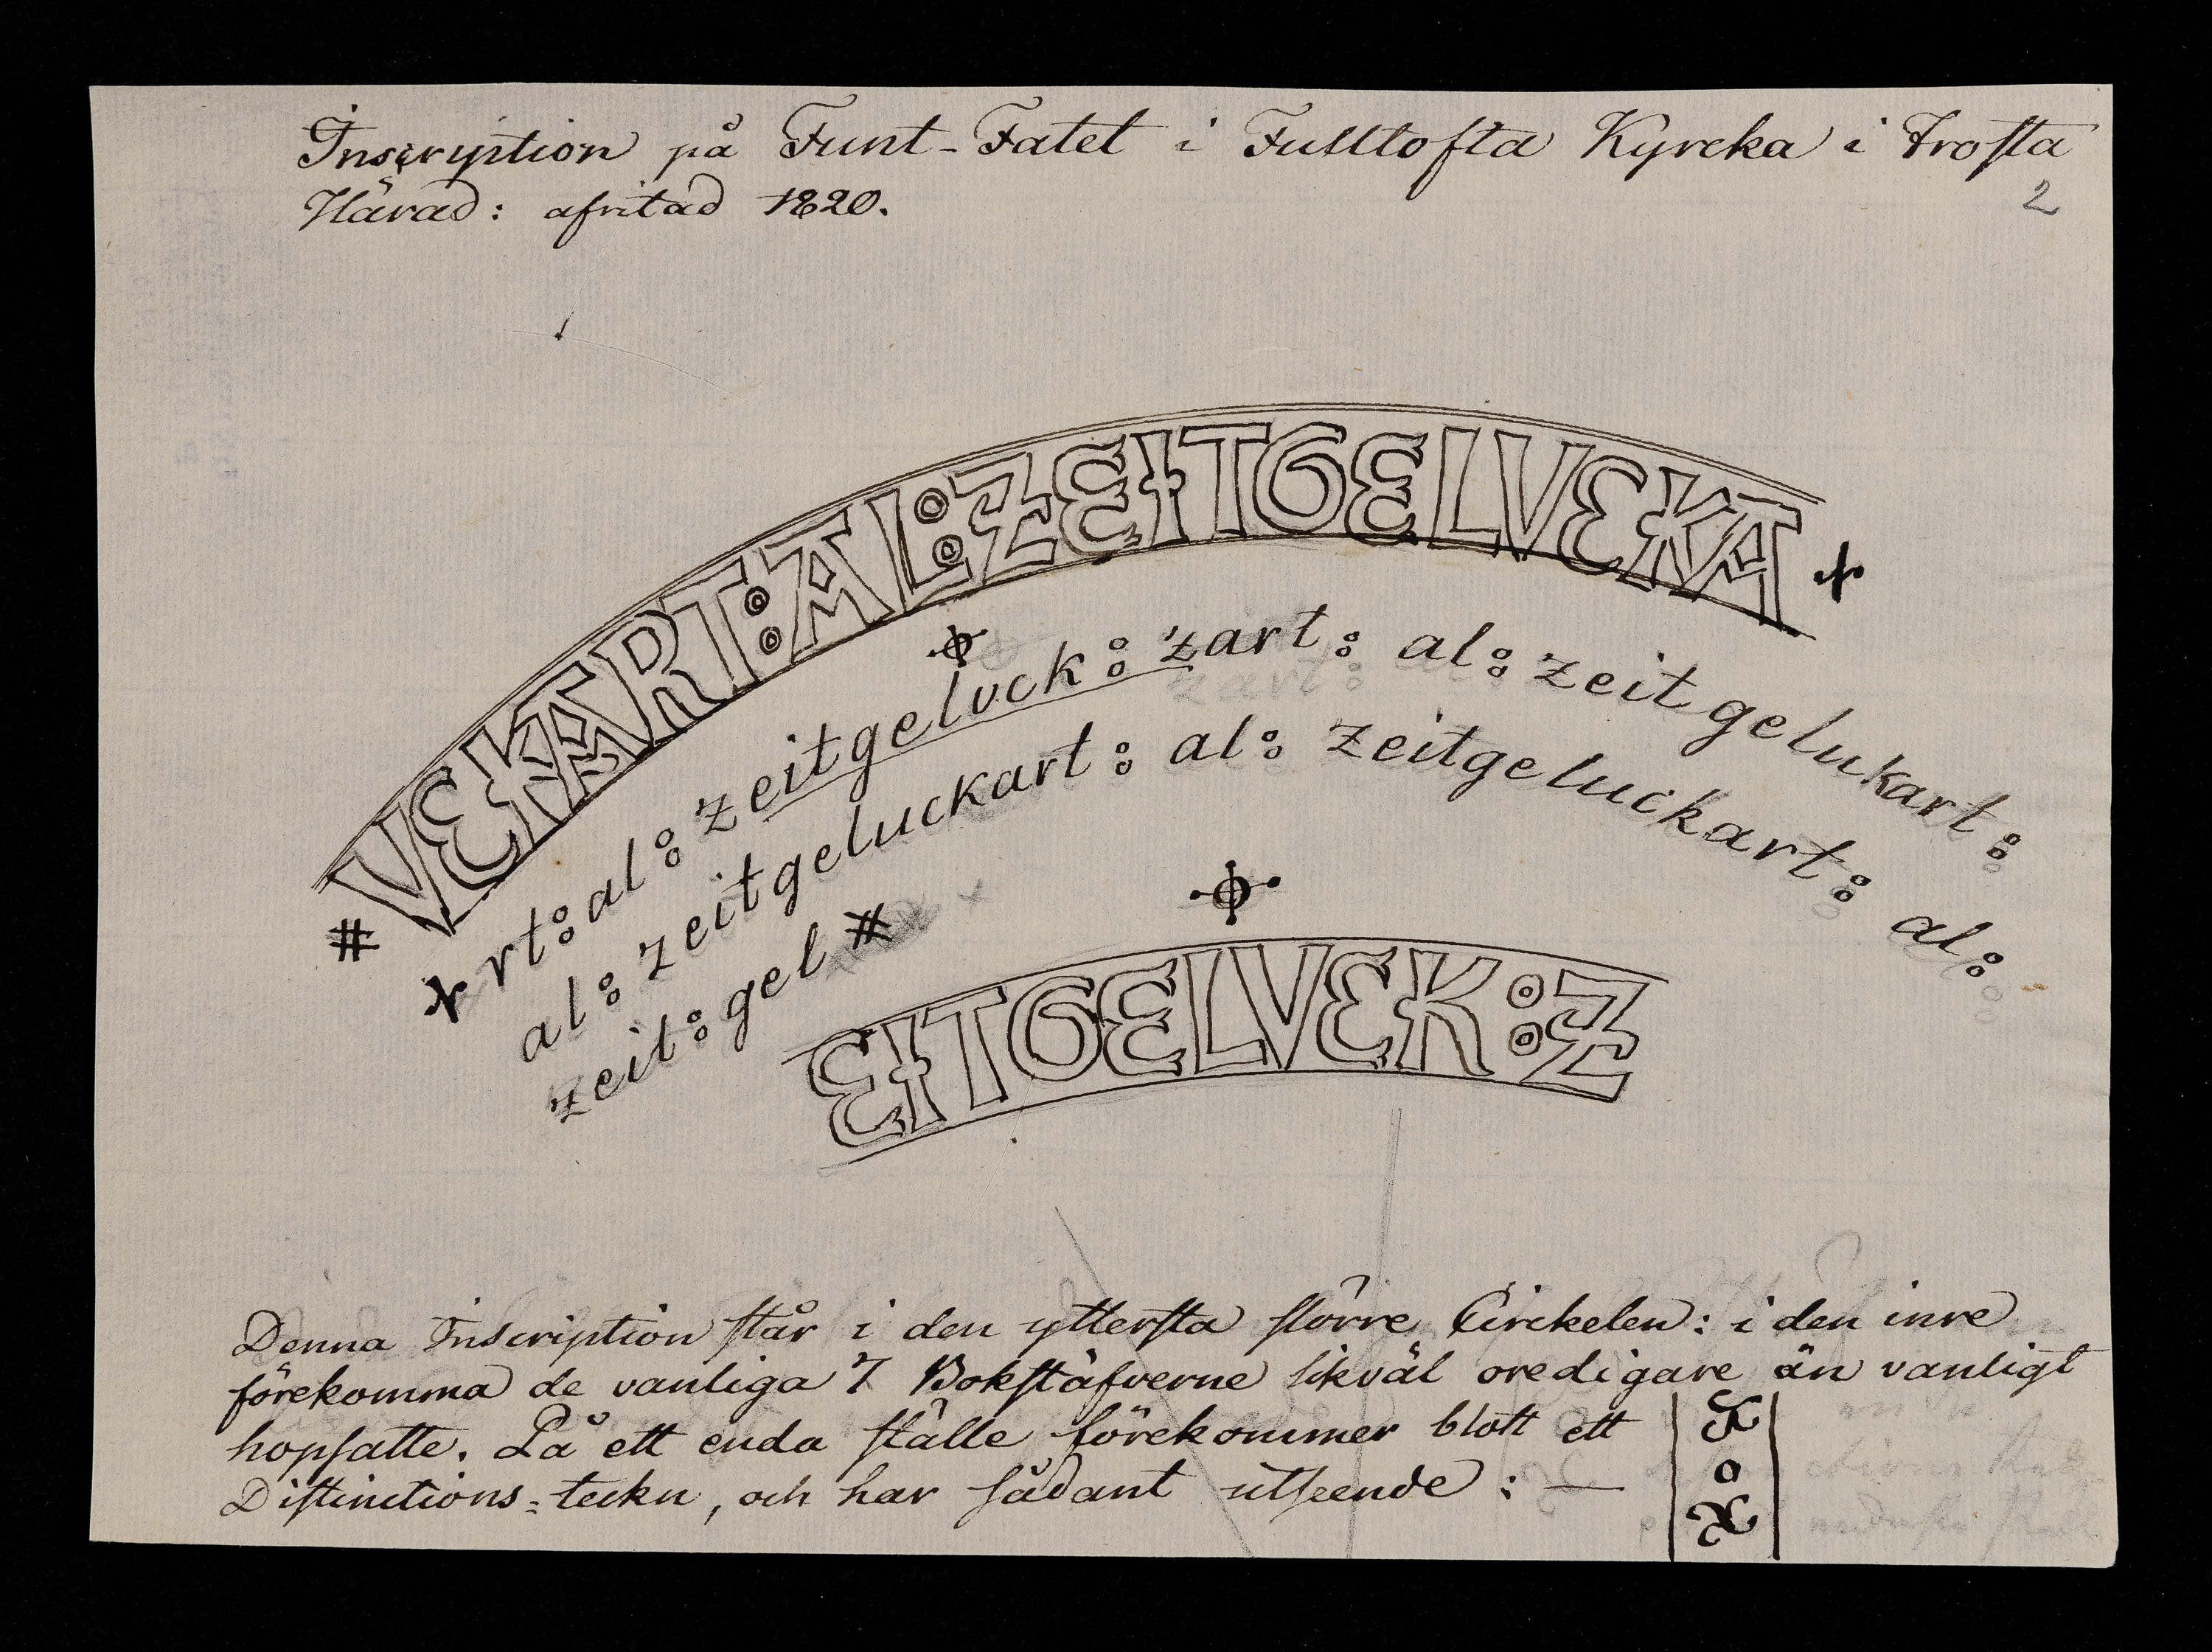 Inscription på Funt-Fatet i Fulltofta Kyrcka i Frosta
Härad: afritad 1820.
2
VEKART:AL:ZEITGELVEKA
rt: al: zeitgeluck: zart: al: zeitgelukart:
al: zeitgeluckart: al: zeitgeluckart: al:
zeit: gel #
#
EITGELVEK:Z
Denna Inscription står i den yttersta större Cirkelen: i den inre
förekomma de vanliga 7 Bokstäfverne likväl oredigare än vanligt
hopsatte. På ett enda ställe förekommer blott ett
Distinctions-tecken, och har sådant utseende: —